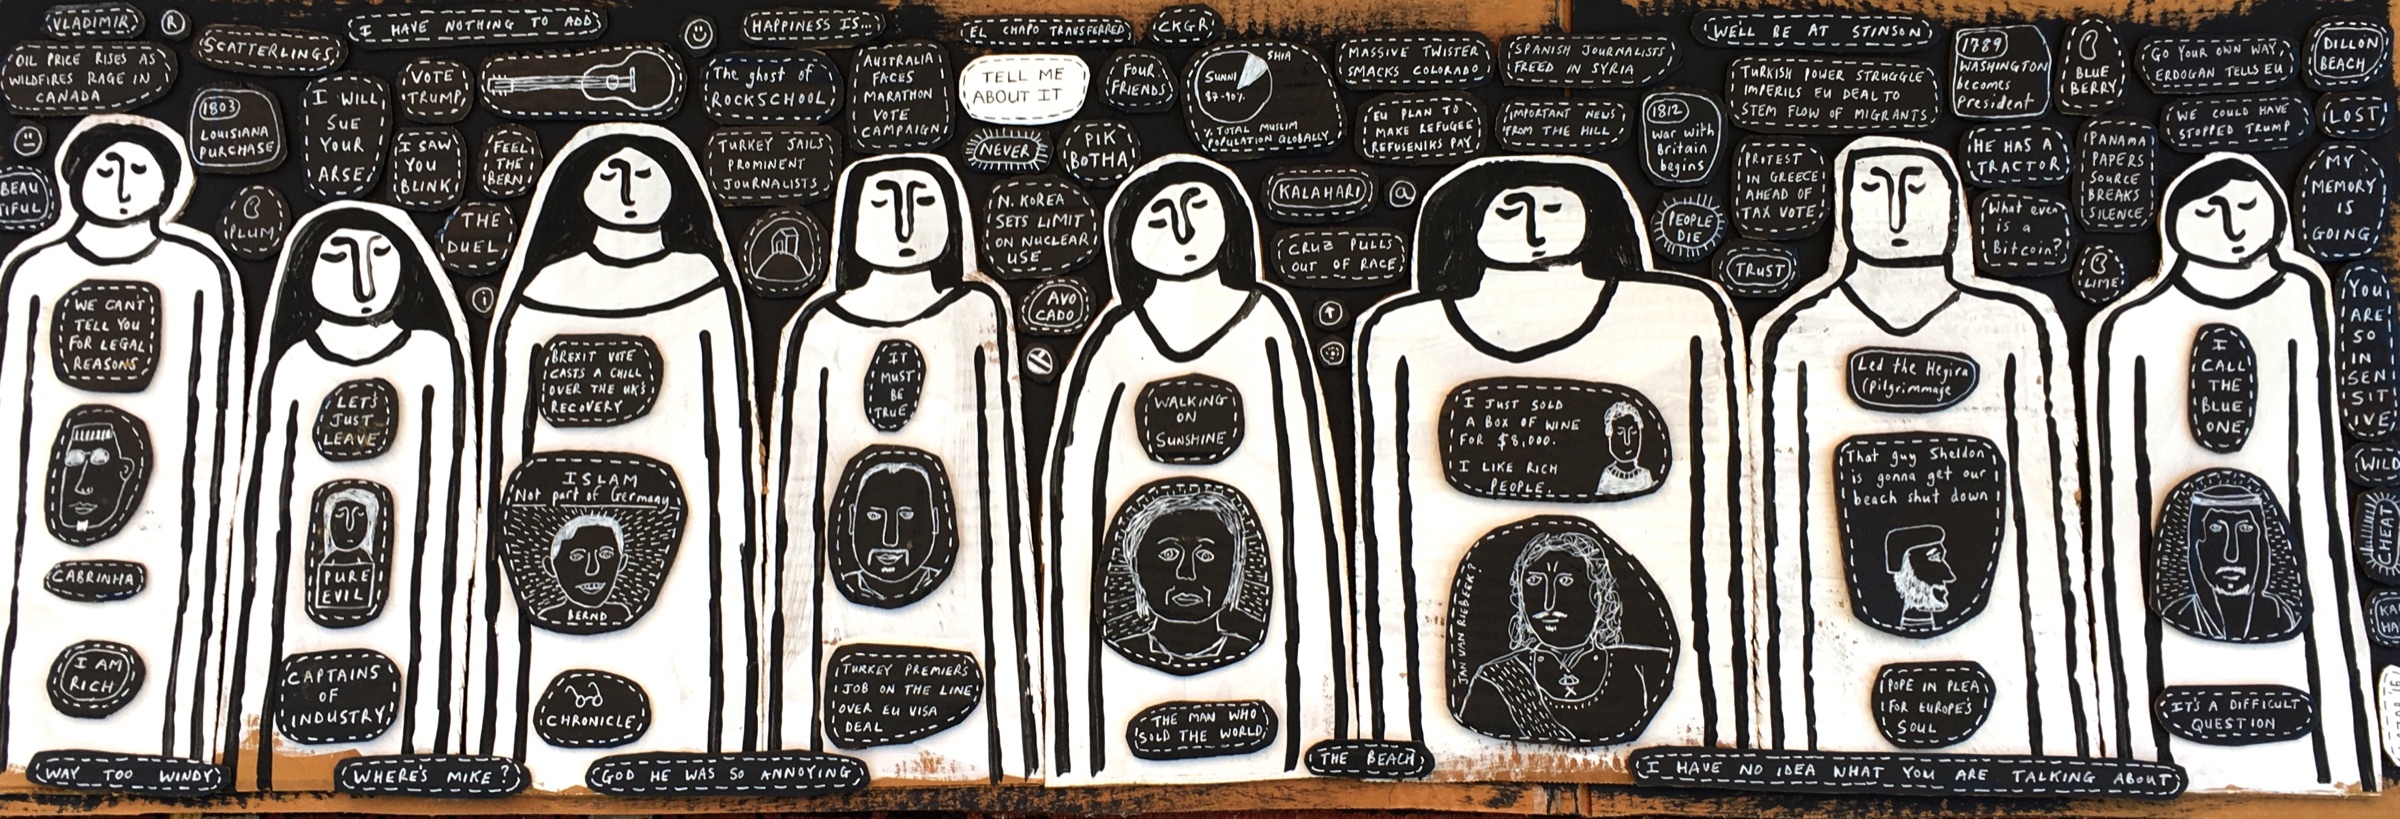 VLADIMIR
R
I HAVE NOTHING TO ADD
HAPPINESS IS...
EL CHAPO TRANSFERRED
CKGR
WE'LL BE AT STINSON
SCATTERLINGS
OIL PRICE RISES AS
WILDFIRES RAGE IN
CANADA
1803
LOUISIANA
PURCHASE
I WILL
SUE
YOUR
ARSE
VOTE
TRUMP
I SAW
YOU
BLINK
FEEL
THE
BERN
THE
DUEL
BEAU
TIFUL
PLUM
i
The ghost of
ROCKSCHOOL
TURKEY JAILS
PROMINENT
JOURNALISTS
AUSTRALIA
FACES
MARATHON
VOTE
CAMPAIGN
TELL ME
ABOUT IT
FOUR
FRIENDS
NEVER
PIK
BOTHA
N. KOREA
SETS LIMIT
ON NUCLEAR
USE
AVO
CADO
SUNNI
SHIA
87-90%
% TOTAL MUSLIM
POPULATION GLOBALLY
MASSIVE TWISTER
SMACKS COLORADO
SPANISH JOURNALISTS
FREED IN SYRIA
EU PLAN TO
MAKE REFUGEE
REFUSENIKS PAY
IMPORTANT NEWS
FROM THE HILL
KALAHARI
@
CRUZ PULLS
OUT OF RACE
1812
War with
Britain
begins
PEOPLE
DIE
TURKISH POWER STRUGGLE
IMPERILS EU DEAL TO
STEM FLOW OF MIGRANTS
PROTEST
IN GREECE
AHEAD OF
TAX VOTE
TRUST
1789
WASHINGTON
becomes
President
BLUE
BERRY
HE HAS A
TRACTOR
What even
is a
Bitcoin?
PANAMA
PAPERS
SOURCE
BREAKS
SILENCE
LIME
GO YOUR OWN WAY
ERDOGAN TELLS EU
WE COULD HAVE
STOPPED TRUMP
DILLON
BEACH
LOST
MY
MEMORY
IS
GOING
YOU
ARE
SO
IN
SEN
SIT
IVE
WILD
CHEAT
WE CAN'T
TELL YOU
FOR LEGAL
REASONS
CABRINHA
I AM
RICH
LET'S
JUST
LEAVE
PURE
EVIL
CAPTAINS
OF
INDUSTRY
BREXIT VOTE
CASTS A CHILL
OVER THE UK'S
RECOVERY
ISLAM
Not part of Germany
BERND
CHRONICLE
IT
MUST
BE
TRUE
TURKEY PREMIER'S
JOB ON THE LINE
OVER EU VISA
DEAL
WALKING
ON
SUNSHINE
THE MAN WHO
SOLD THE WORLD
I JUST SOLD
A BOX OF WINE
FOR $8,000.
I LIKE RICH
PEOPLE.
JAN VAN RIEBEEK?
Led the Hegira
(Pilgrimmage
That guy Sheldon
is gonna get our
beach shut down
POPE IN PLEA
FOR EUROPE'S
SOUL
I
CALL
THE
BLUE
ONE
IT'S A DIFFICULT
QUESTION
WAY TOO WINDY
WHERE'S MIKE?
GOD HE WAS SO ANNOYING
THE BEACH
I HAVE NO IDEA WHAT YOU ARE TALKING ABOUT